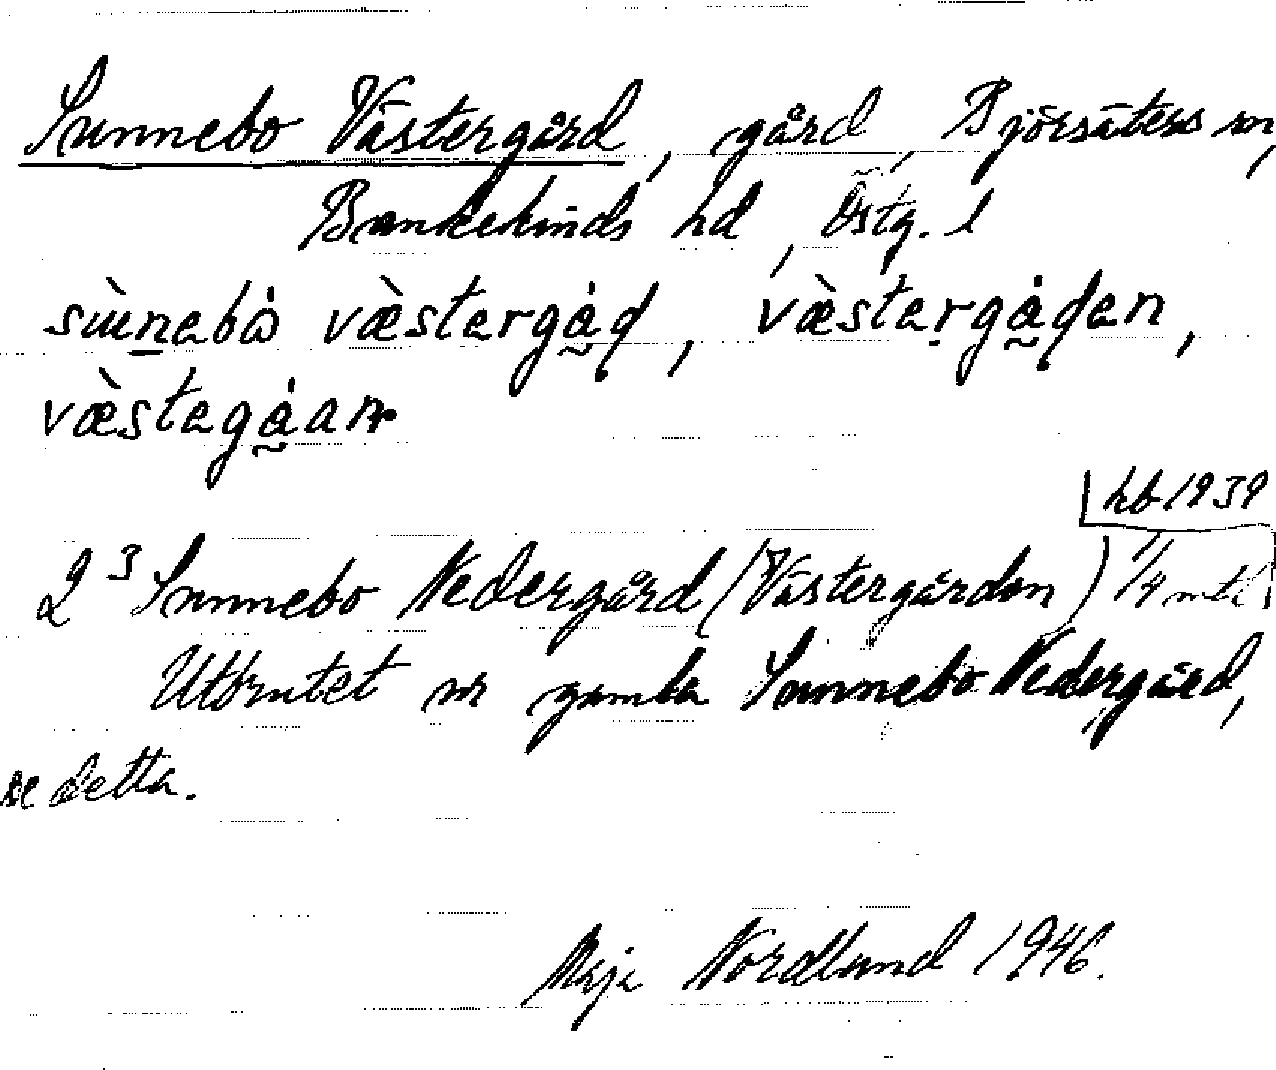 Sunnebo Västergård, gård, Björsäters sn,
Bankekinds hd, Östg. l
sùnabȯ væ̀stergȧd, væ̀stergȧden,
væ̀stagȧan
hb 1939
2³ Sunnebo Nedergård (Västergården) 1/4 mtl
Utbrutet ur gamla Sunnebo Nedergård,
se detta.
Maja Nordlund 1946.